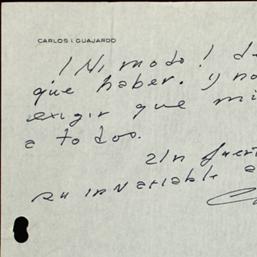 CARLOS I. GUAJARDO
¡Ni modo! de
que haber. y no
exigir que mi
a todos.
Un fuert
su invariable a